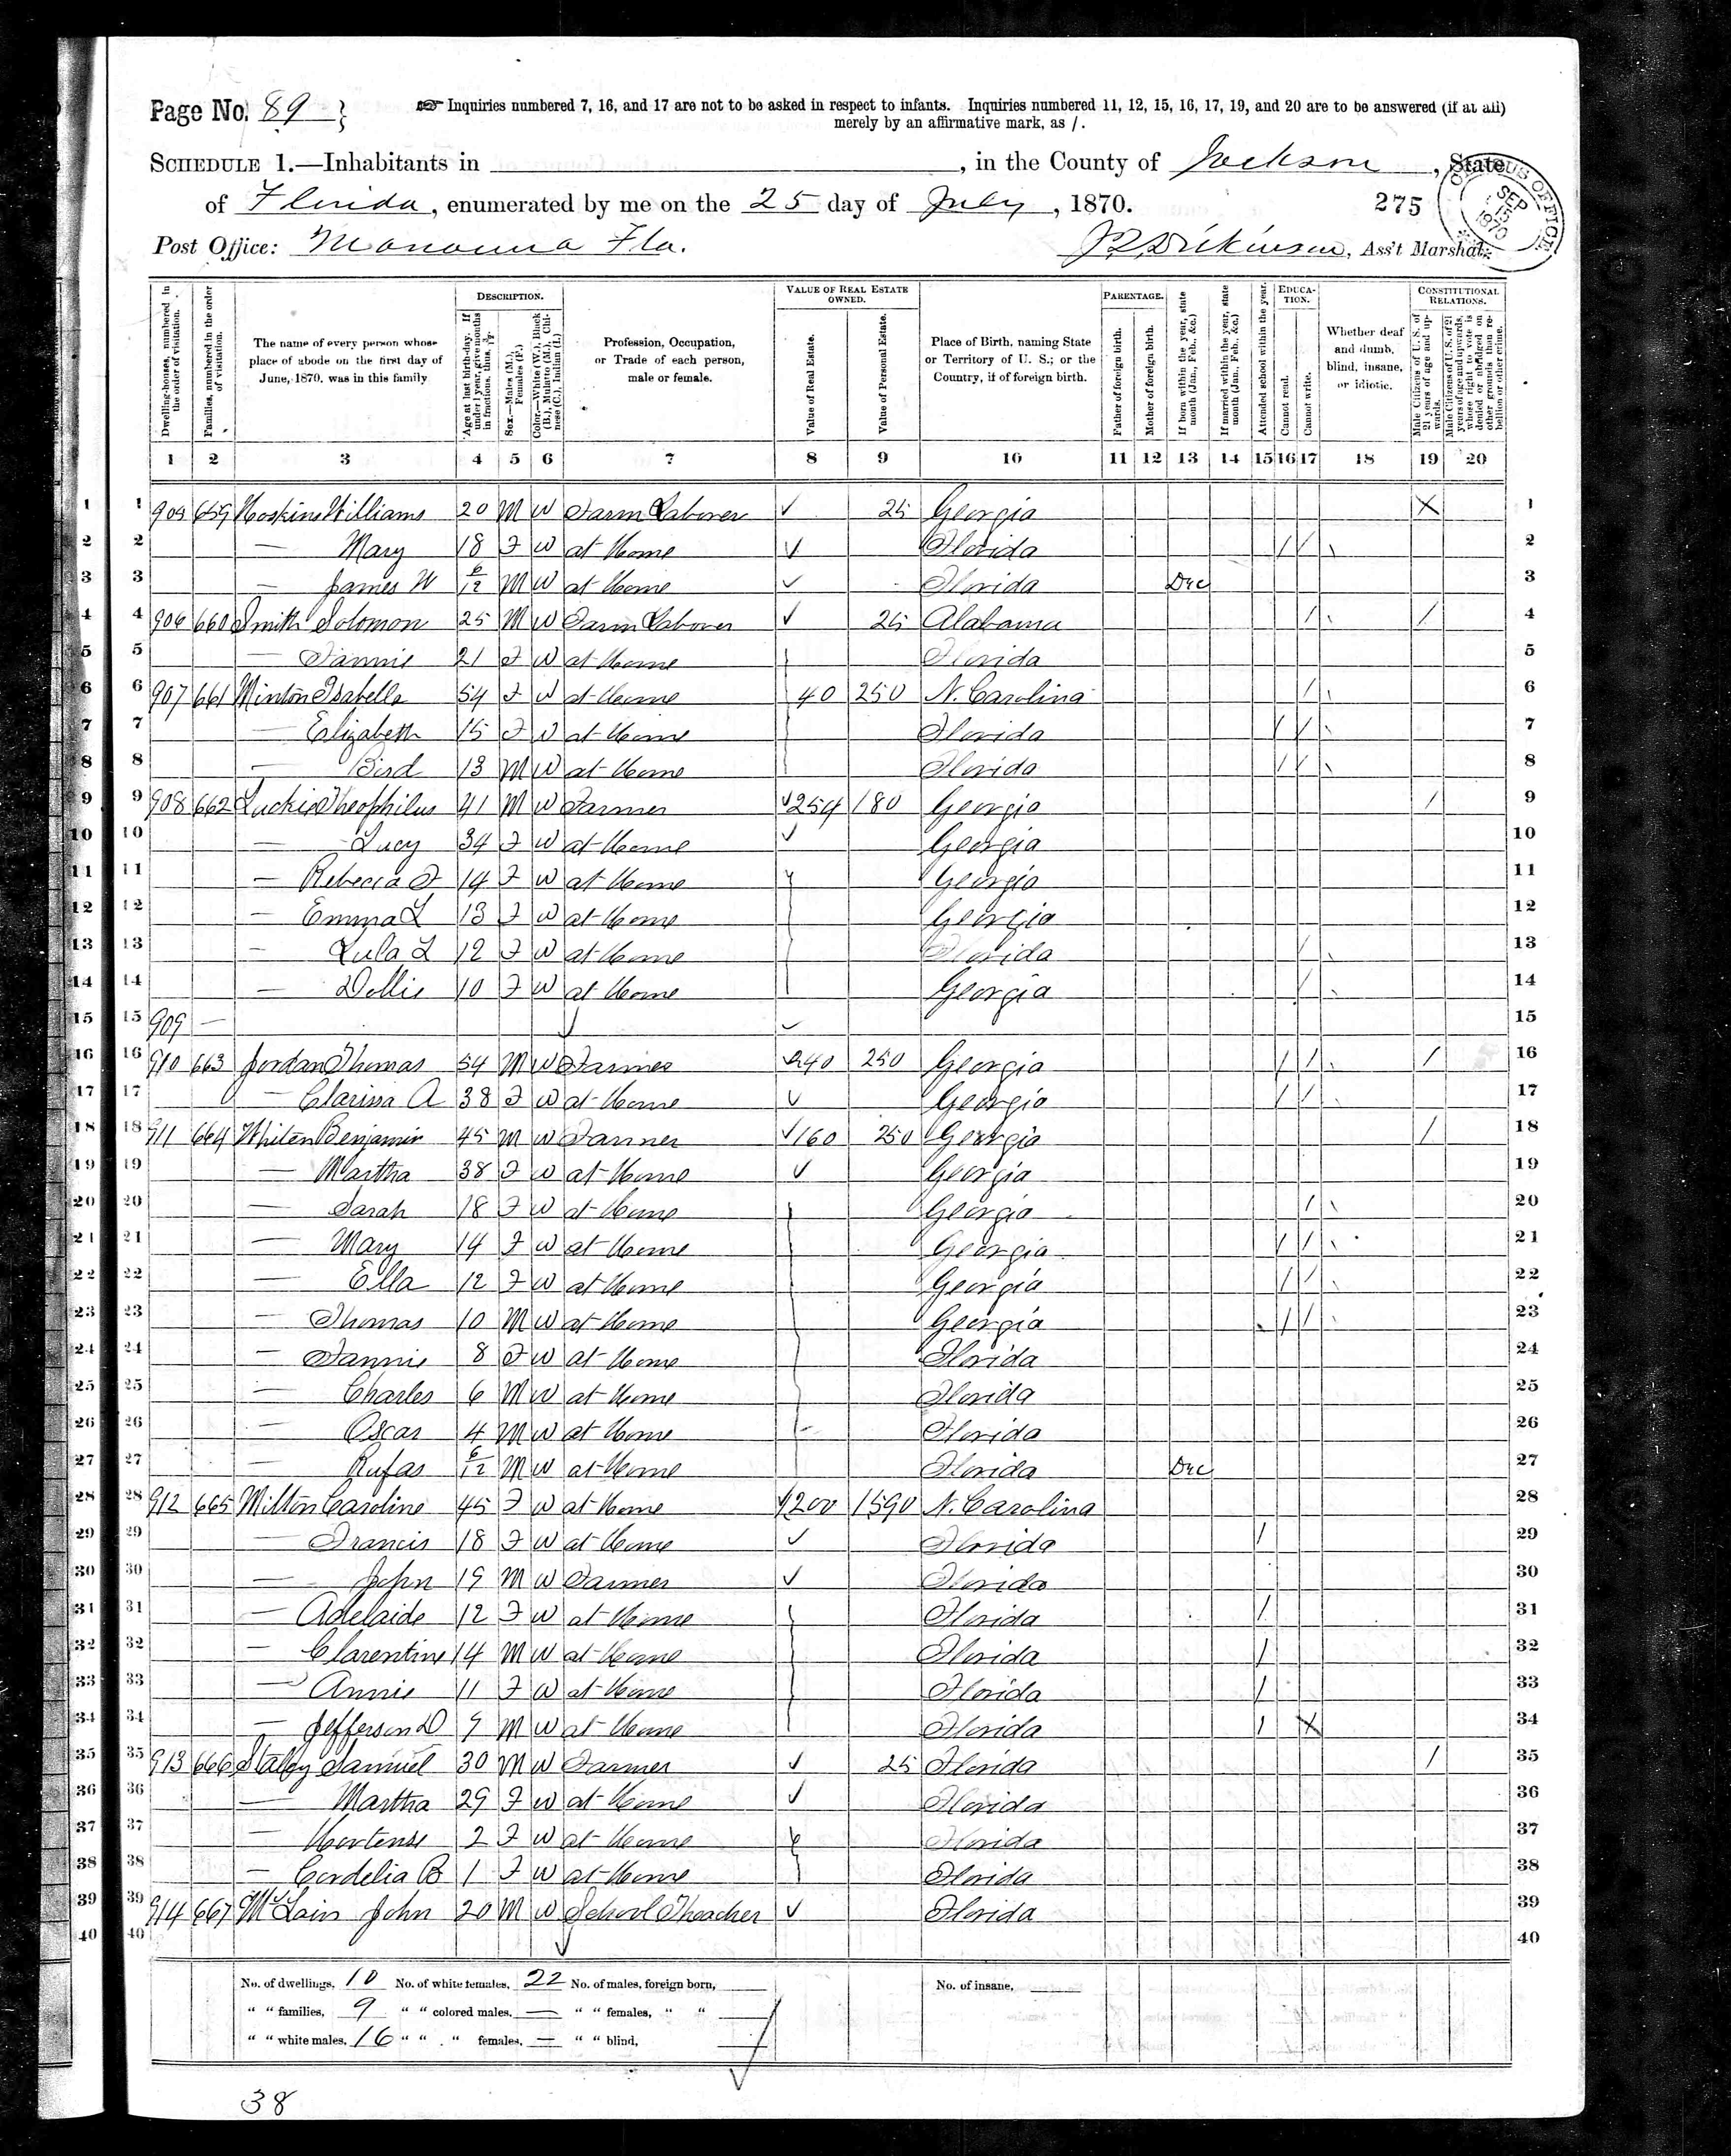 Page No. 89
Inquiries numbered 7, 16, and 17 are not to be asked in respect to infants. Inquiries numbered 11, 12, 15, 16, 17, 19, and 20 are to be answered (if at all)
merely by an affirmative mark, as /.
SCHEDULE 1.—Inhabitants in , in the County of Jackson, State
of Florida, enumerated by me on the 25 day of July, 1870.
275
CENSUS OFFICE SEP 15 1870
Post Office: Marianna Fla.
Dickinson, Ass't Marshal.
Dwelling-houses, numbered in the order of visitation.
Families, numbered in the order of visitation.
The name of every person whose place of abode on the first day of June, 1870, was in this family
DESCRIPTION.
Age at last birth-day. If under 1 year, give months in fractions, thus, 3/12
Sex.—Males (M.), Females (F.)
Color.—White (W.), Black (B.), Mulatto (M.), Chinese (C.), Indian (I.)
Profession, Occupation, or Trade of each person, male or female.
VALUE OF REAL ESTATE OWNED.
Value of Real Estate.
Value of Personal Estate.
Place of Birth, naming State or Territory of U. S.; or the Country, if of foreign birth.
PARENTAGE.
Father of foreign birth.
Mother of foreign birth.
If born within the year, state month (Jan., Feb., &c.)
If married within the year, state month (Jan., Feb., &c.)
Attended school within the year.
EDUCATION.
Cannot read.
Cannot write.
Whether deaf and dumb, blind, insane, or idiotic.
CONSTITUTIONAL RELATIONS.
Male Citizens of U.S. of 21 years of age and upwards.
Male Citizens of U.S. of 21 years of age and upwards, whose right to vote is denied or abridged on other grounds than rebellion or other crime.
1 2 3 4 5 6 7 8 9 10 11 12 13 14 15 16 17 18 19 20
1 905 659 Hoskins Williams 20 M W Farm Laborer 25 Georgia X 1
2 — Mary 18 F W at Home Florida / / 2
3 — James W 6/12 M W at Home Florida Dec 3
4 906 660 Smith Solomon 25 M W Farm Laborer 25 Alabama / / 4
5 — Fannie 21 F W at Home Florida 5
6 907 661 Minton Isabella 54 F W at Home 40 250 N. Carolina / 6
7 — Elizabeth 15 F W at Home Florida / / 7
8 — Bird 13 M W at Home Florida / / 8
9 908 662 Luckie Theophilus 41 M W Farmer 254 180 Georgia / 9
10 — Lucy 34 F W at Home Georgia 10
11 — Rebecca F 14 F W at Home Georgia 11
12 — Emma L 13 F W at Home Georgia 12
13 — Lula L 12 F W at Home Florida / 13
14 — Dollie 10 F W at Home Georgia / 14
15 909 — 15
16 910 663 Jordan Thomas 54 M W Farmer 240 250 Georgia / / / 16
17 — Clarissa A 38 F W at Home Georgia / / 17
18 911 664 Whiten Benjamin 45 M W Farmer 160 250 Georgia / 18
19 — Martha 38 F W at Home Georgia 19
20 — Sarah 18 F W at Home Georgia / 20
21 — Mary 14 F W at Home Georgia / / 21
22 — Ella 12 F W at Home Georgia / / 22
23 — Thomas 10 M W at Home Georgia / / 23
24 — Fannie 8 F W at Home Florida 24
25 — Charles 6 M W at Home Florida 25
26 — Oscar 4 M W at Home Florida 26
27 — Rufas 6/12 M W at Home Florida Dec 27
28 912 665 Milton Caroline 45 F W at Home 1200 1590 N. Carolina 28
29 — Francis 18 F W at Home Florida / 29
30 — John 19 M W Farmer Florida 30
31 — Adelaide 12 F W at Home Florida / 31
32 — Clarentine 14 M W at Home Florida / 32
33 — Annie 11 F W at Home Florida / 33
34 — Jefferson D 9 M W at Home Florida / X 34
35 913 666 Staley Samuel 30 M W Farmer 25 Florida / 35
36 — Martha 29 F W at Home Florida 36
37 — Hortense 2 F W at Home Florida 37
38 — Cordelia B 1 F W at Home Florida 38
39 914 667 McLain John 20 M W School Theacher Florida 39
40 40
No. of dwellings, 10 No. of white females, 22 No. of males, foreign born, No. of insane,
" " families, 9 " " colored males, — " " females, " "
" " white males, 16 " " " females, — " " blind,
38